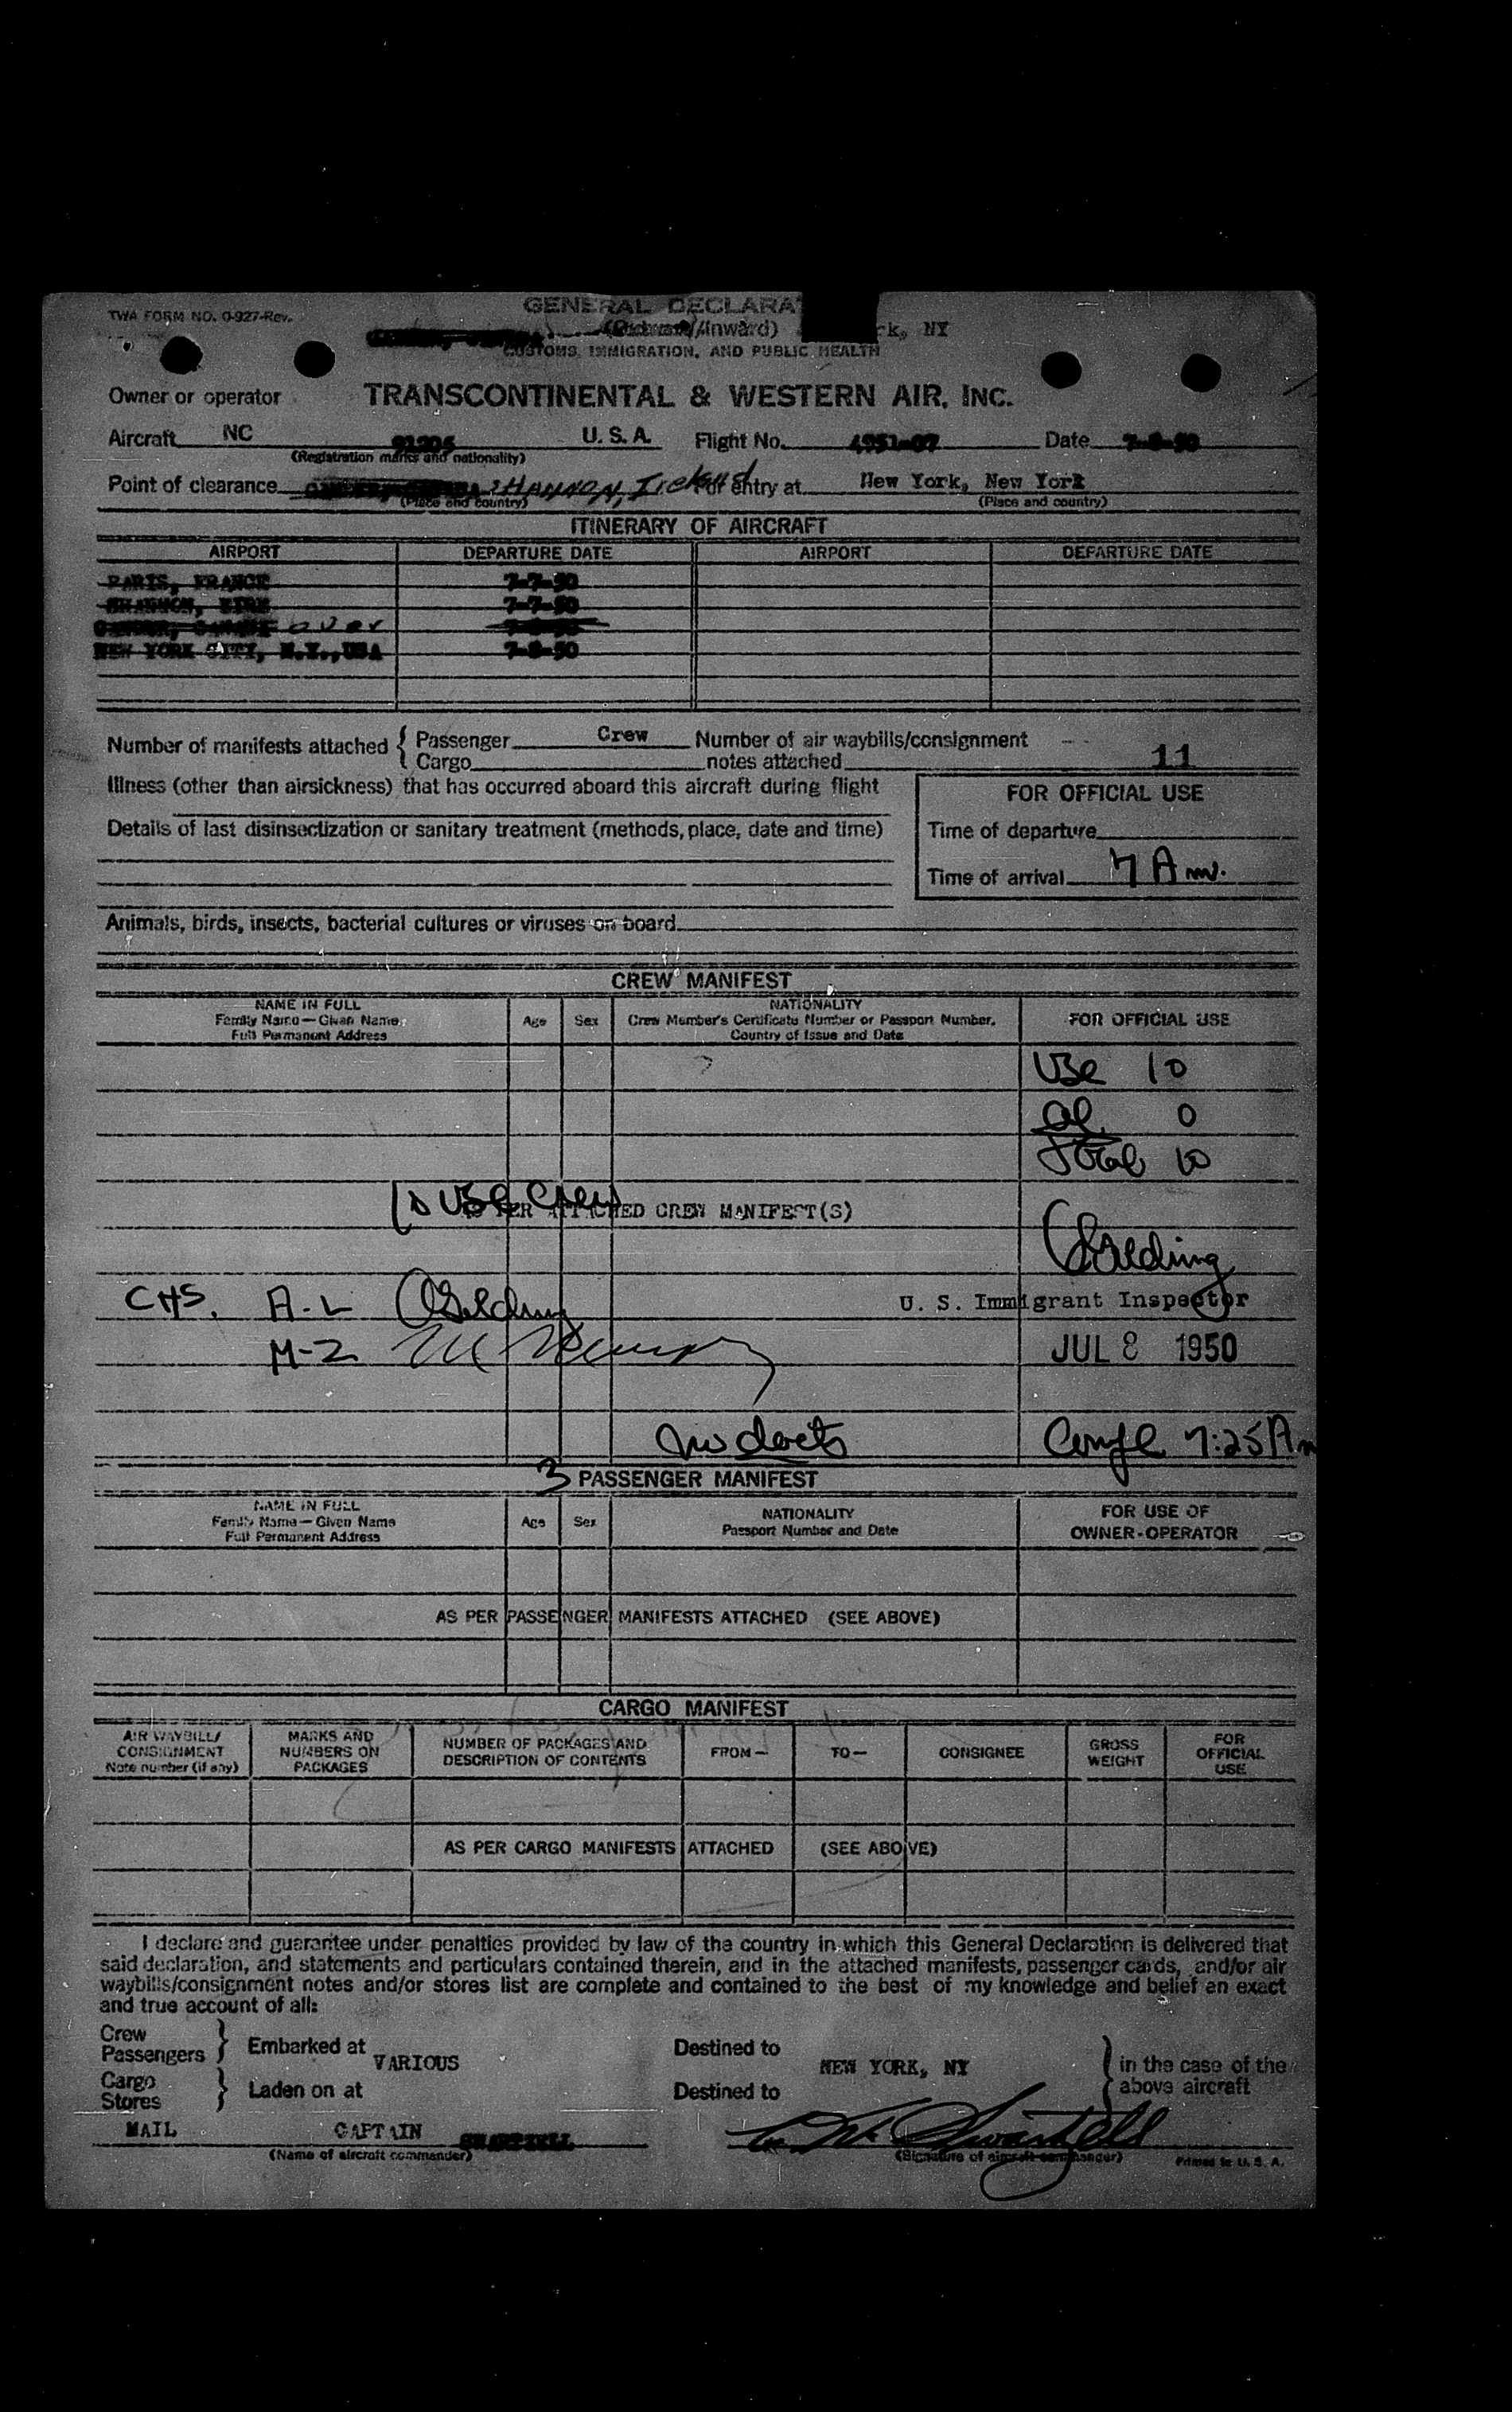 TWA FORM NO. O-927-Rev.
GENERAL DECLARA
(Outward/Inward) rk, NY
CUSTOMS, IMMIGRATION, AND PUBLIC HEALTH
Owner or operator TRANSCONTINENTAL & WESTERN AIR, INC.
Aircraft NC U. S. A. Flight No. 4951-07 Date 7-8-50
(Registration marks and nationality)
Point of clearance SHANNON, Ireland For entry at New York, New York
(Place and country) (Place and country)
ITINERARY OF AIRCRAFT
AIRPORT DEPARTURE DATE AIRPORT DEPARTURE DATE
PARIS, FRANCE 7-7-50
SHANNON, EIRE 7-7-50
over
NEW YORK CITY, N.Y., USA 7-8-50
Number of manifests attached { Passenger Crew Number of air waybills/consignment
Cargo notes attached 11
Illness (other than airsickness) that has occurred aboard this aircraft during flight
FOR OFFICIAL USE
Details of last disinsectization or sanitary treatment (methods, place, date and time)
Time of departure
Time of arrival 7 Am.
Animals, birds, insects, bacterial cultures or viruses on board
CREW MANIFEST
NAME IN FULL
Family Name—Given Name
Full Permanent Address
Age Sex
NATIONALITY
Crew Member's Certificate Number or Passport Number,
Country of Issue and Date
FOR OFFICIAL USE
USC 10
al 0
Total 10
10 USC Crew
AS PER ATTACHED CREW MANIFEST(S)
CHS. A-L
U. S. Immigrant Inspector
M-Z
JUL 8 1950
no docts Compl 7:25 Am
3 PASSENGER MANIFEST
NAME IN FULL
Family Name—Given Name
Full Permanent Address
Age Sex
NATIONALITY
Passport Number and Date
FOR USE OF
OWNER-OPERATOR
AS PER PASSENGER MANIFESTS ATTACHED (SEE ABOVE)
CARGO MANIFEST
AIR WAYBILL/
CONSIGNMENT
Note number (if any)
MARKS AND
NUMBERS ON
PACKAGES
NUMBER OF PACKAGES AND
DESCRIPTION OF CONTENTS
FROM— TO— CONSIGNEE
GROSS
WEIGHT
FOR
OFFICIAL
USE
AS PER CARGO MANIFESTS ATTACHED (SEE ABOVE)
I declare and guarantee under penalties provided by law of the country in which this General Declaration is delivered that
said declaration, and statements and particulars contained therein, and in the attached manifests, passenger cards, and/or air
waybills/consignment notes and/or stores list are complete and contained to the best of my knowledge and belief an exact
and true account of all:
Crew
Passengers } Embarked at VARIOUS Destined to NEW YORK, NY } in the case of the
Cargo
Stores } Laden on at Destined to above aircraft
MAIL CAPTAIN SWARTZELL
(Name of aircraft commander) (Signature of aircraft commander) Printed in U. S. A.